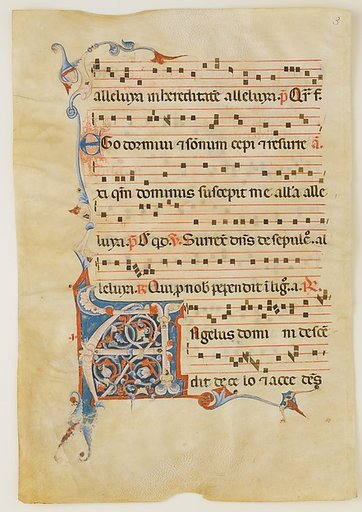 3
alleluya in hereditate alleluya. p̄ Qr̄ f.
EGo dormiui ⁊ sōnum cepi ⁊ resurre a.
xi qm̄ dominus suscepit me all'a alle
luya. p̄ qd. v. Surrex̄ dn̄s de sepulc̄. al
leluya. R Qui p nob pependit ī lig̅. a. R.
Angelus domi ni descē
dit de ce lo ⁊ acce dēs